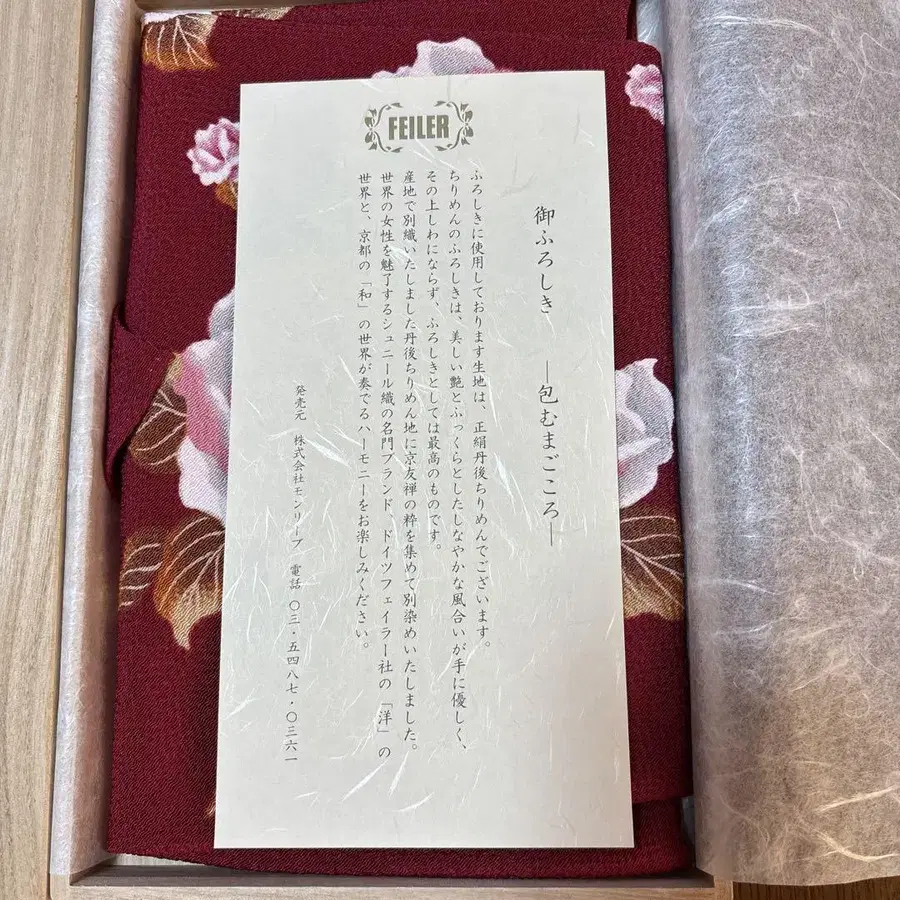 FEILER
御ふろしき ―包むまごころ―
ふろしきに使用しております生地は、正絹丹後ちりめんでございます。
ちりめんのふろしきは、美しい艶とふっくらとしたしなやかな風合いが手に優しく、
その上しわにならず、ふろしきとしては最高のものです。
産地で別織いたしました丹後ちりめん地に京友禅の粋を集めて別染めいたしました。
世界の女性を魅了するシュニール織の名門ブランド ドイツフェイラー社の「洋」の
世界と、京都の「和」の世界が奏でるハーモニーをお楽しみください。
発売元 株式会社モンリーブ 電話 〇三・五四八七・〇三六一